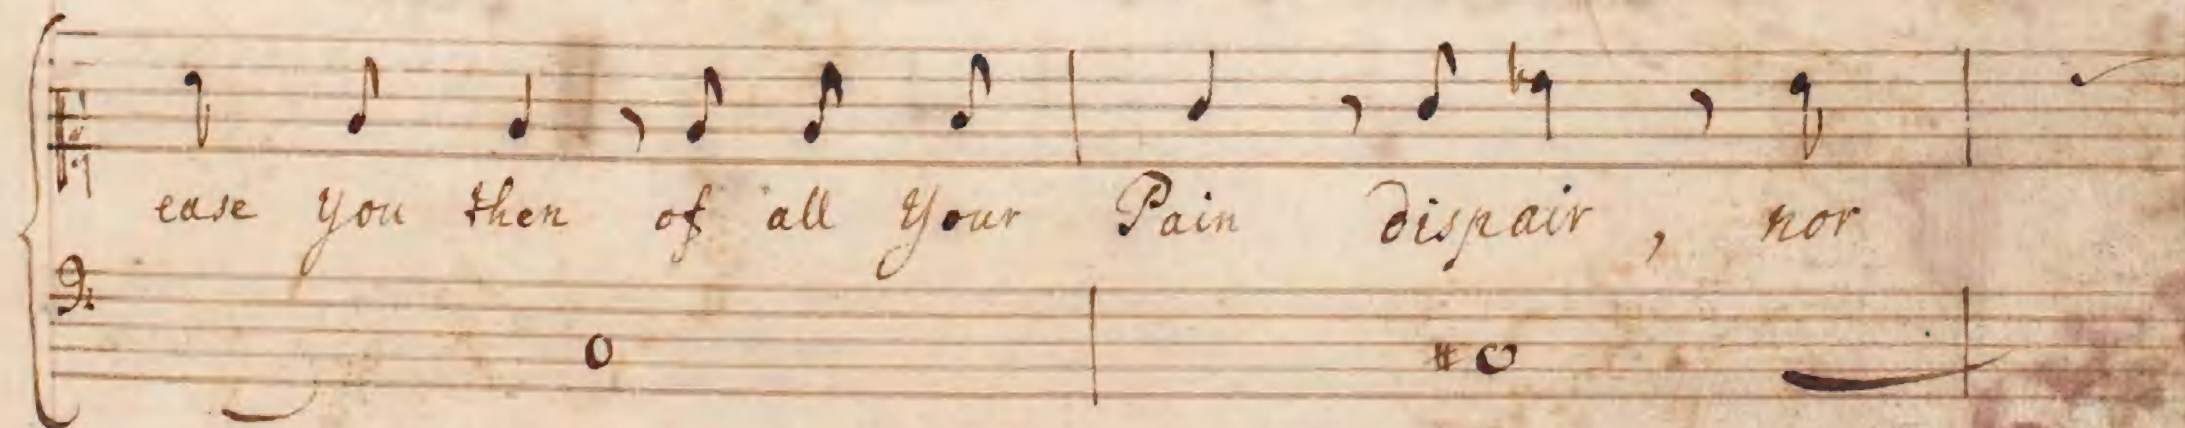 ease you then of all your Pain dispair, nor